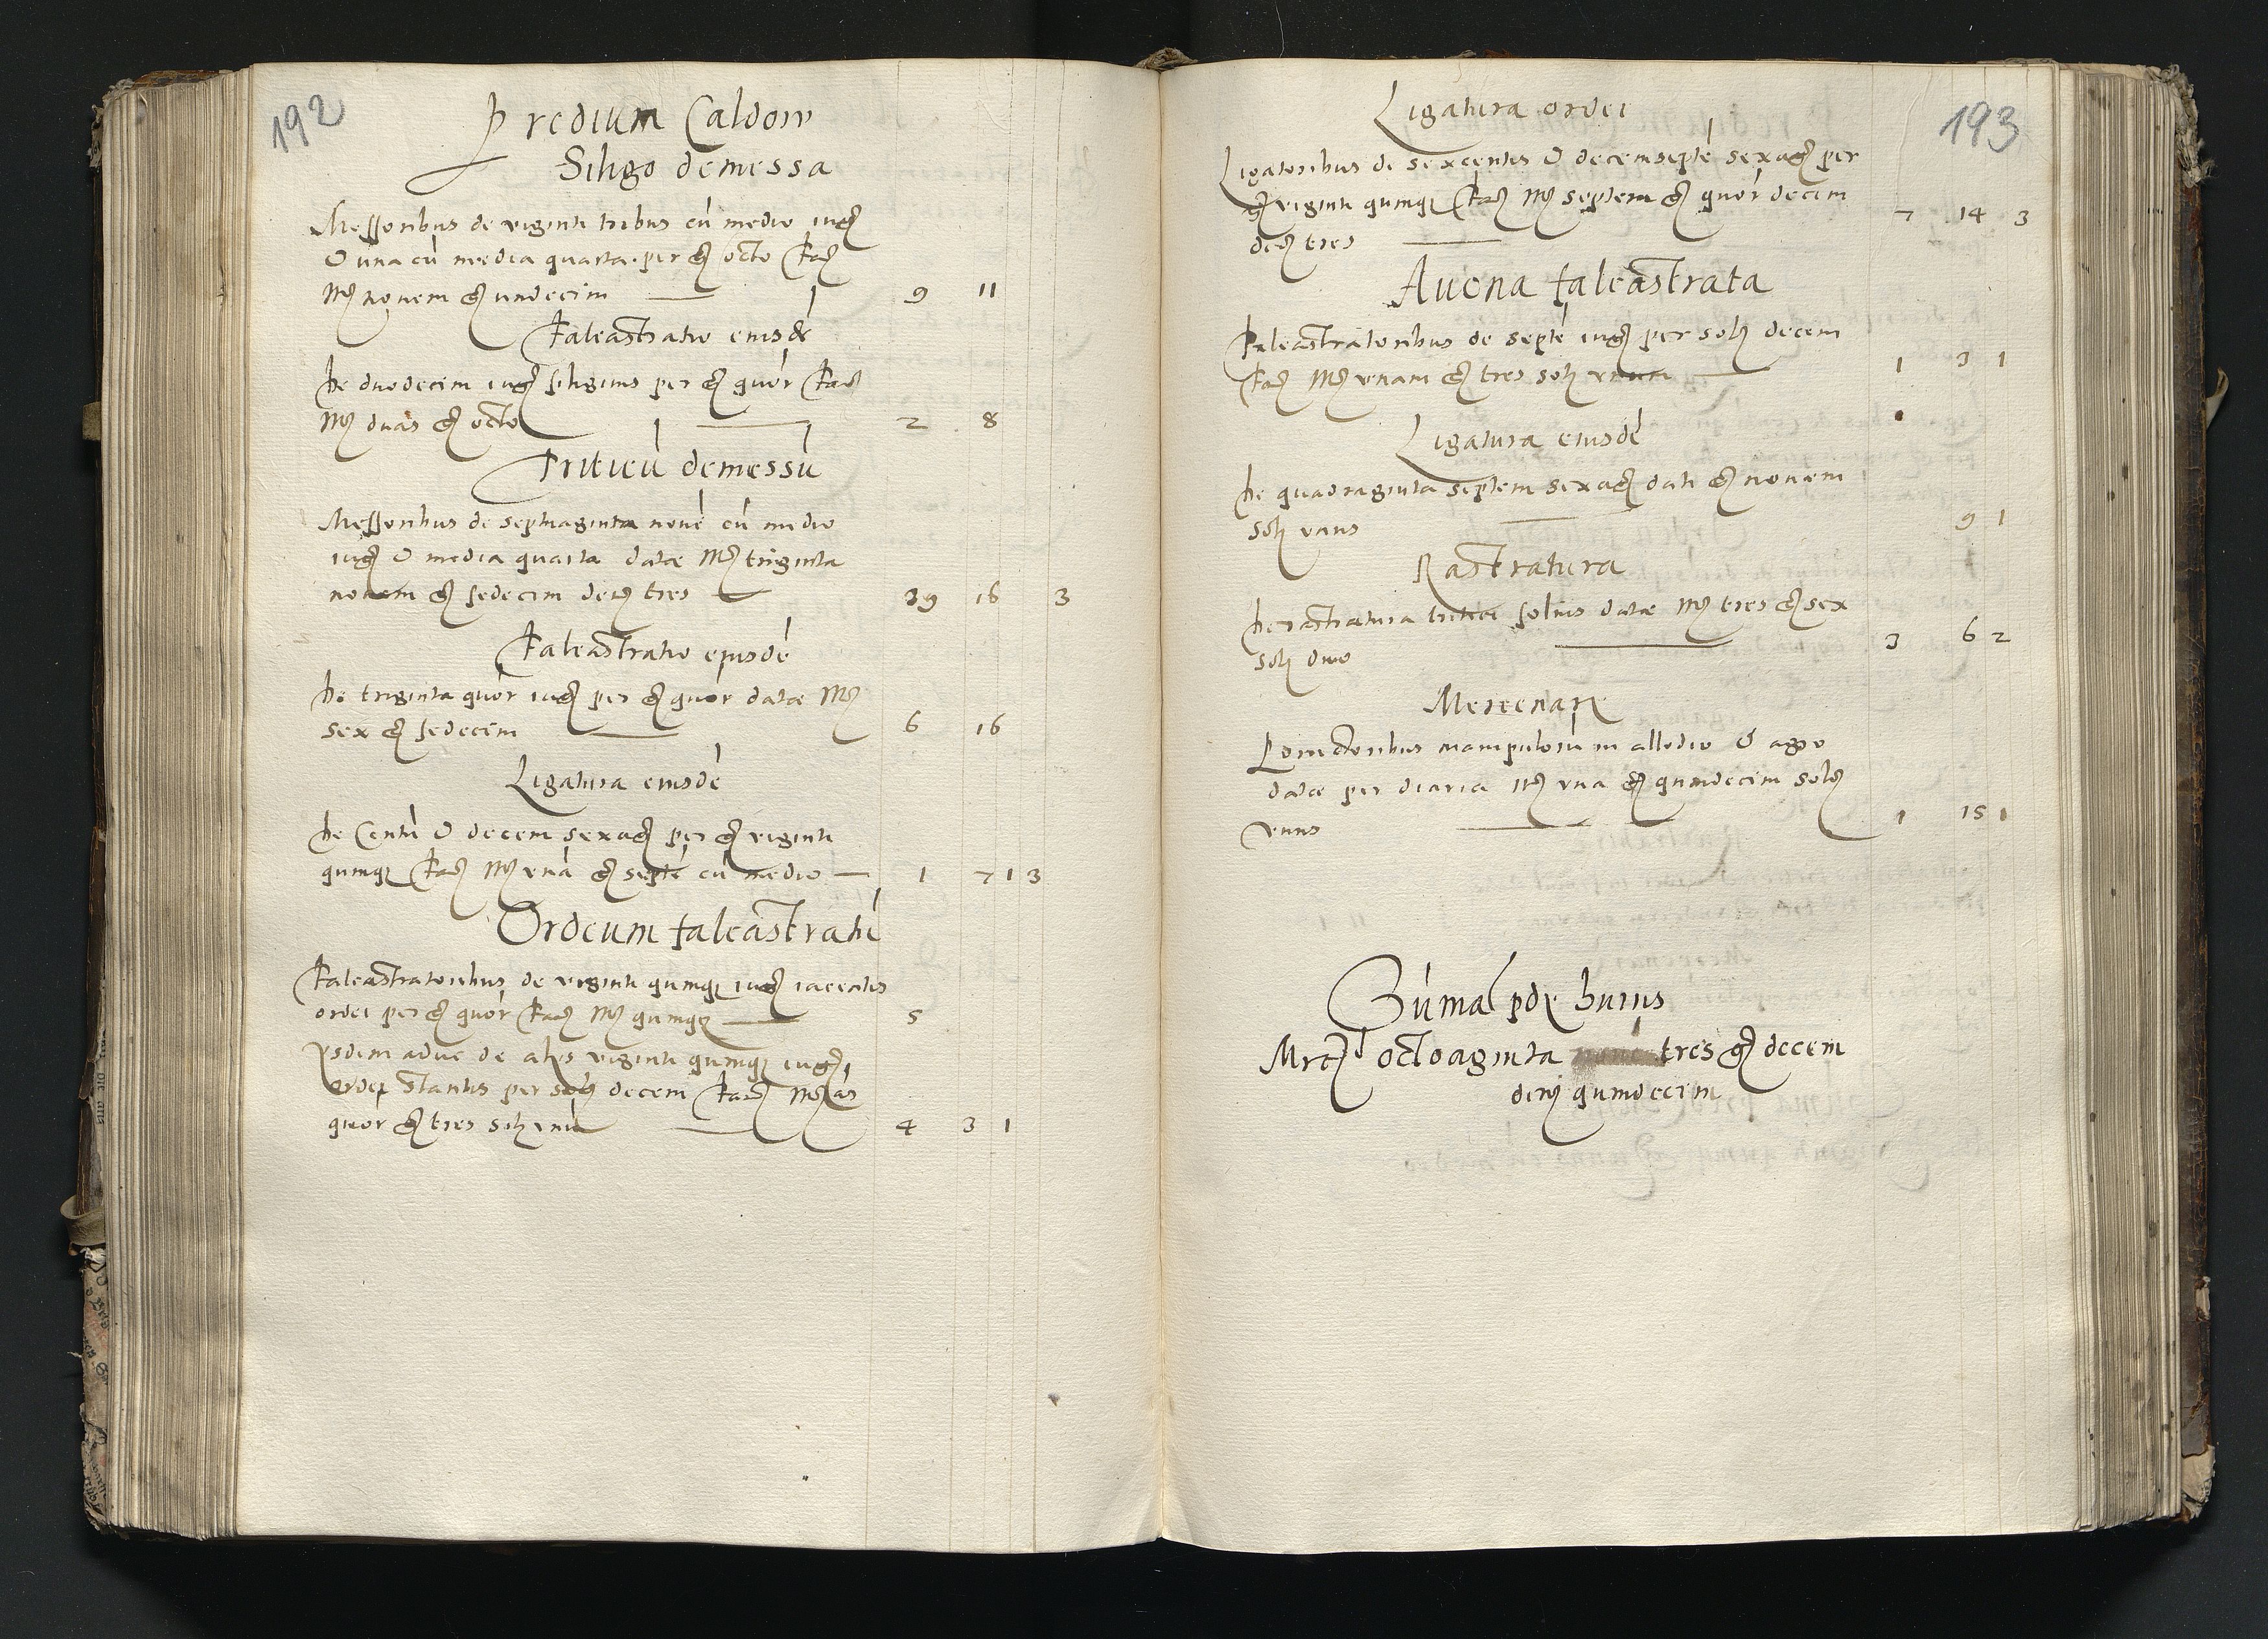 192
Predium Caldow
Siligo demessa
Messoribus de viginti tribus cū medio iug
& una cū media quarta per g octo fac
Mr novem g undecim 9 11
Faleastratio eiusdē
De duodecim iug siliginis per g quor fac
Mr duas g octo 2 8
Triticū demessū
Messoribus de septuaginta novē cū medio
iug & media quarta datae Mr triginta
novem g sedecim den tres 39 16 3
Faleastratio ejusdē
De triginta quor iug per g quor datae Mr
sex g sedecim 6 16
Ligatura eiusdē
De Centū & decem sexag per g viginti
quinq fac Mr vnā g septē cū medio 1 7 1 3
Ordeum faleastratū
Faleastratoribus de viginti quinq iug iacentis
ordei per g quor fac Mr quinq 5
Ysdem aduc de alys viginti quinq iug
ordei stantis per sol decem fac Mr
quor g tres sol vnū 4 3 1
193
Ligatura ordei
Ligatoribus de sexcentis & decemseptē sexag per
g viginti quinq fac Mr septem g quor decim
den tres 7 14 3
Auena faleastrata
Faleastratoribus de septē iug per sol decem
fac Mr vnam g tres sol vnum 1 3 1
Ligatura eiusdē
De quadraginta septem sexag dati g novem
sol vnus 9 1
Rastratura
De rastratura tritici solius datae Mr tres g sex
sol duo 3 6 2
Mercenarii
Comctoribus manipulorū in allodio & agro
datae per diaria Mr vna g quindecim sol
vnus 1 15 1
Sūma pdii huius
Mrc octoaginta tres g decem
den quindecim